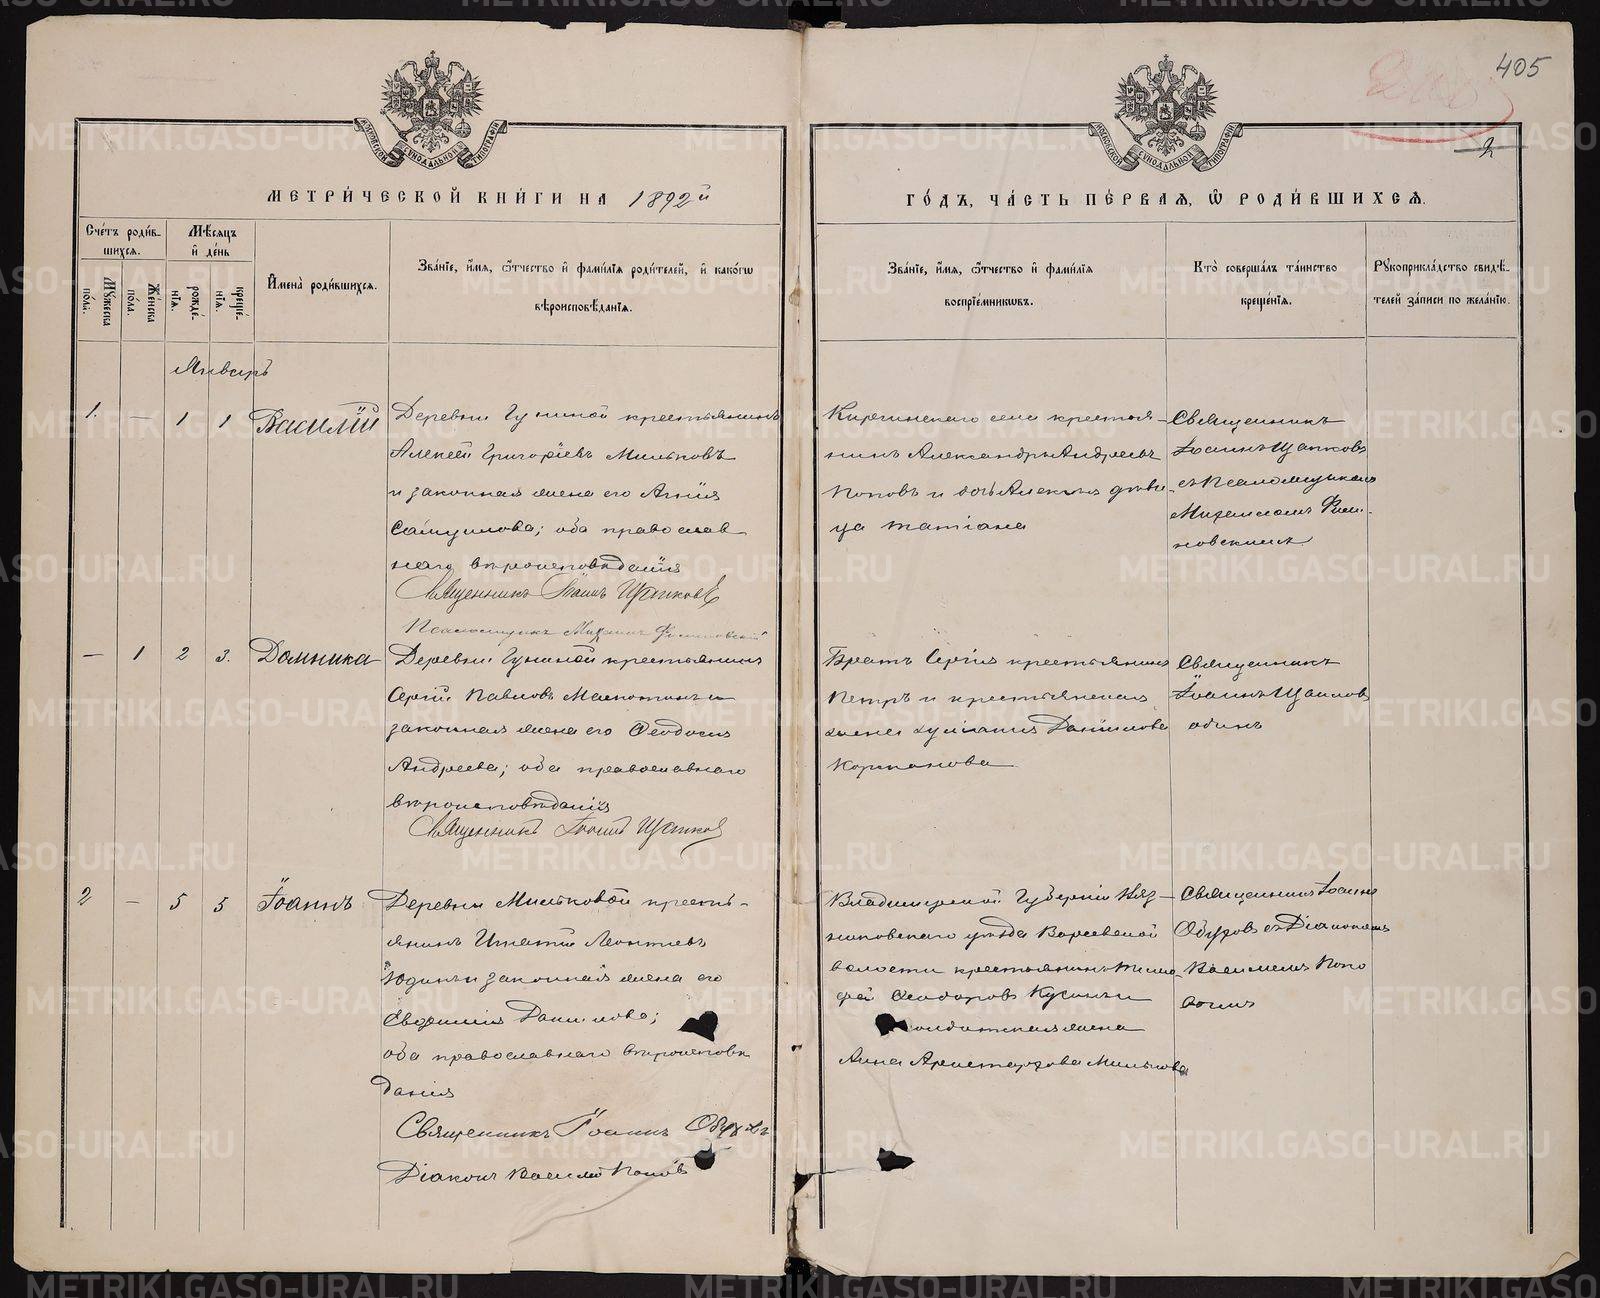 405
2
МЕТРИ́ЧЕСКОЙ КНИ́ГИ НА 1892й
ГО́ДЪ, ЧА́СТЬ ПЕ́РВАЯ, Ѡ РОДИ́ВШИХСЯ.
Сче́тъ роди́в-
шихся.
Му́жеска по́ла.
Же́нска по́ла.
Мѣ́сяцъ
и де́нь
рожде́-
нїя.
креще́-
нїя.
И҆мена̀ роди́вшихся.
Зва́нїе, и҆́мя, ѻ҆́тчество и҆ фами́лїя роди́телей, и҆ како́гѡ
вѣроисповѣ́данїя.
Зва́нїе, и҆́мя, ѻ҆́тчество и҆ фами́лїя
воспрїе́мникѡвъ.
Кто̀ соверша́лъ та́инство
креще́нїя.
Рꙋкоприкла́дство свидѣ́-
телей за́писи по жела́нїю.
Январь
1. — 1 1 Василій
Деревни Гуниной крестьянинъ
Алексѣй Григоріевъ Мильковъ
и законная жена его Агнія
Самуилова; оба православ
наго вѣроисповѣданія
Священникъ Іоаннъ Щапковъ
Псаломщикъ Михаилъ
Киргинскаго села крестья-
нинъ Александръ Андреевъ
Поповъ и дочь Алексѣя дѣви-
ца Татіана
Священникъ
Іоаннъ Щапковъ
съ Псаломщикомъ
Михаиломъ
— 1 2 3. Домника
Деревни Гуниной крестьянинъ
Сергій Павловъ и
законная жена его Ѳеодосія
Андреева; оба православнаго
вѣроисповѣданія
Священникъ Іоаннъ Щапковъ
Братъ Сергія крестьянинъ
Петръ и крестьянская
жена Іуліанія Даніилова
Священникъ
Іоаннъ Щапковъ
одинъ
2 — 5 5 Іоаннъ
Деревни Мильковой кресть-
янинъ Игнатій Леонтіевъ
Юдинъ и законная жена его
Евфимія Данилова;
оба православнаго вѣроисповѣ
данія
Священникъ Іоаннъ
Діаконъ Василій Поповъ
Владимірской Губерніи Вяз-
никовскаго уѣзда
волости крестьянинъ Тимо-
фей Ѳеодоровъ и
солдатская жена
Анна Аристархова Милькова
Священникъ Іоаннъ
съ Діакономъ
Василіемъ Попо
вымъ
METRIKI.GASO-URAL.RU